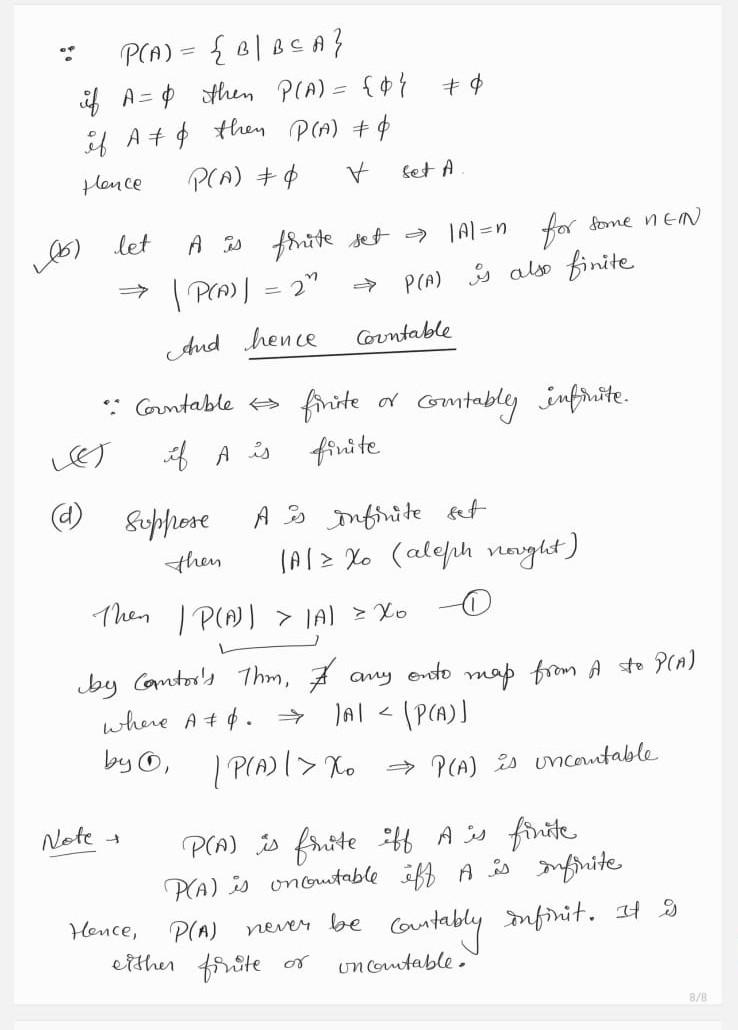 ∵ P(A) = { B | B ⊆ A }
if A = ϕ then P(A) = {ϕ} ≠ ϕ
if A ≠ ϕ then P(A) ≠ ϕ
Hence P(A) ≠ ϕ ∀ set A.
(b) let A is finite set ⇒ |A| = n for some n ∈ ℕ
⇒ |P(A)| = 2ⁿ ⇒ P(A) is also finite
And hence Countable
∵ Countable ⇔ finite or countably infinite.
(c) if A is finite
(d) Suppose A is infinite set
then |A| ≥ χ₀ (aleph nought)
Then |P(A)| > |A| ≥ χ₀ —①
by Cantor's Thm, ∄ any onto map from A to P(A)
where A ≠ ϕ. ⇒ |A| < |P(A)|
by ①, |P(A)| > χ₀ ⇒ P(A) is uncountable
Note → P(A) is finite iff A is finite
P(A) is uncountable iff A is infinite
Hence, P(A) never be Countably infinit. It is
either finite or uncountable.
8/8